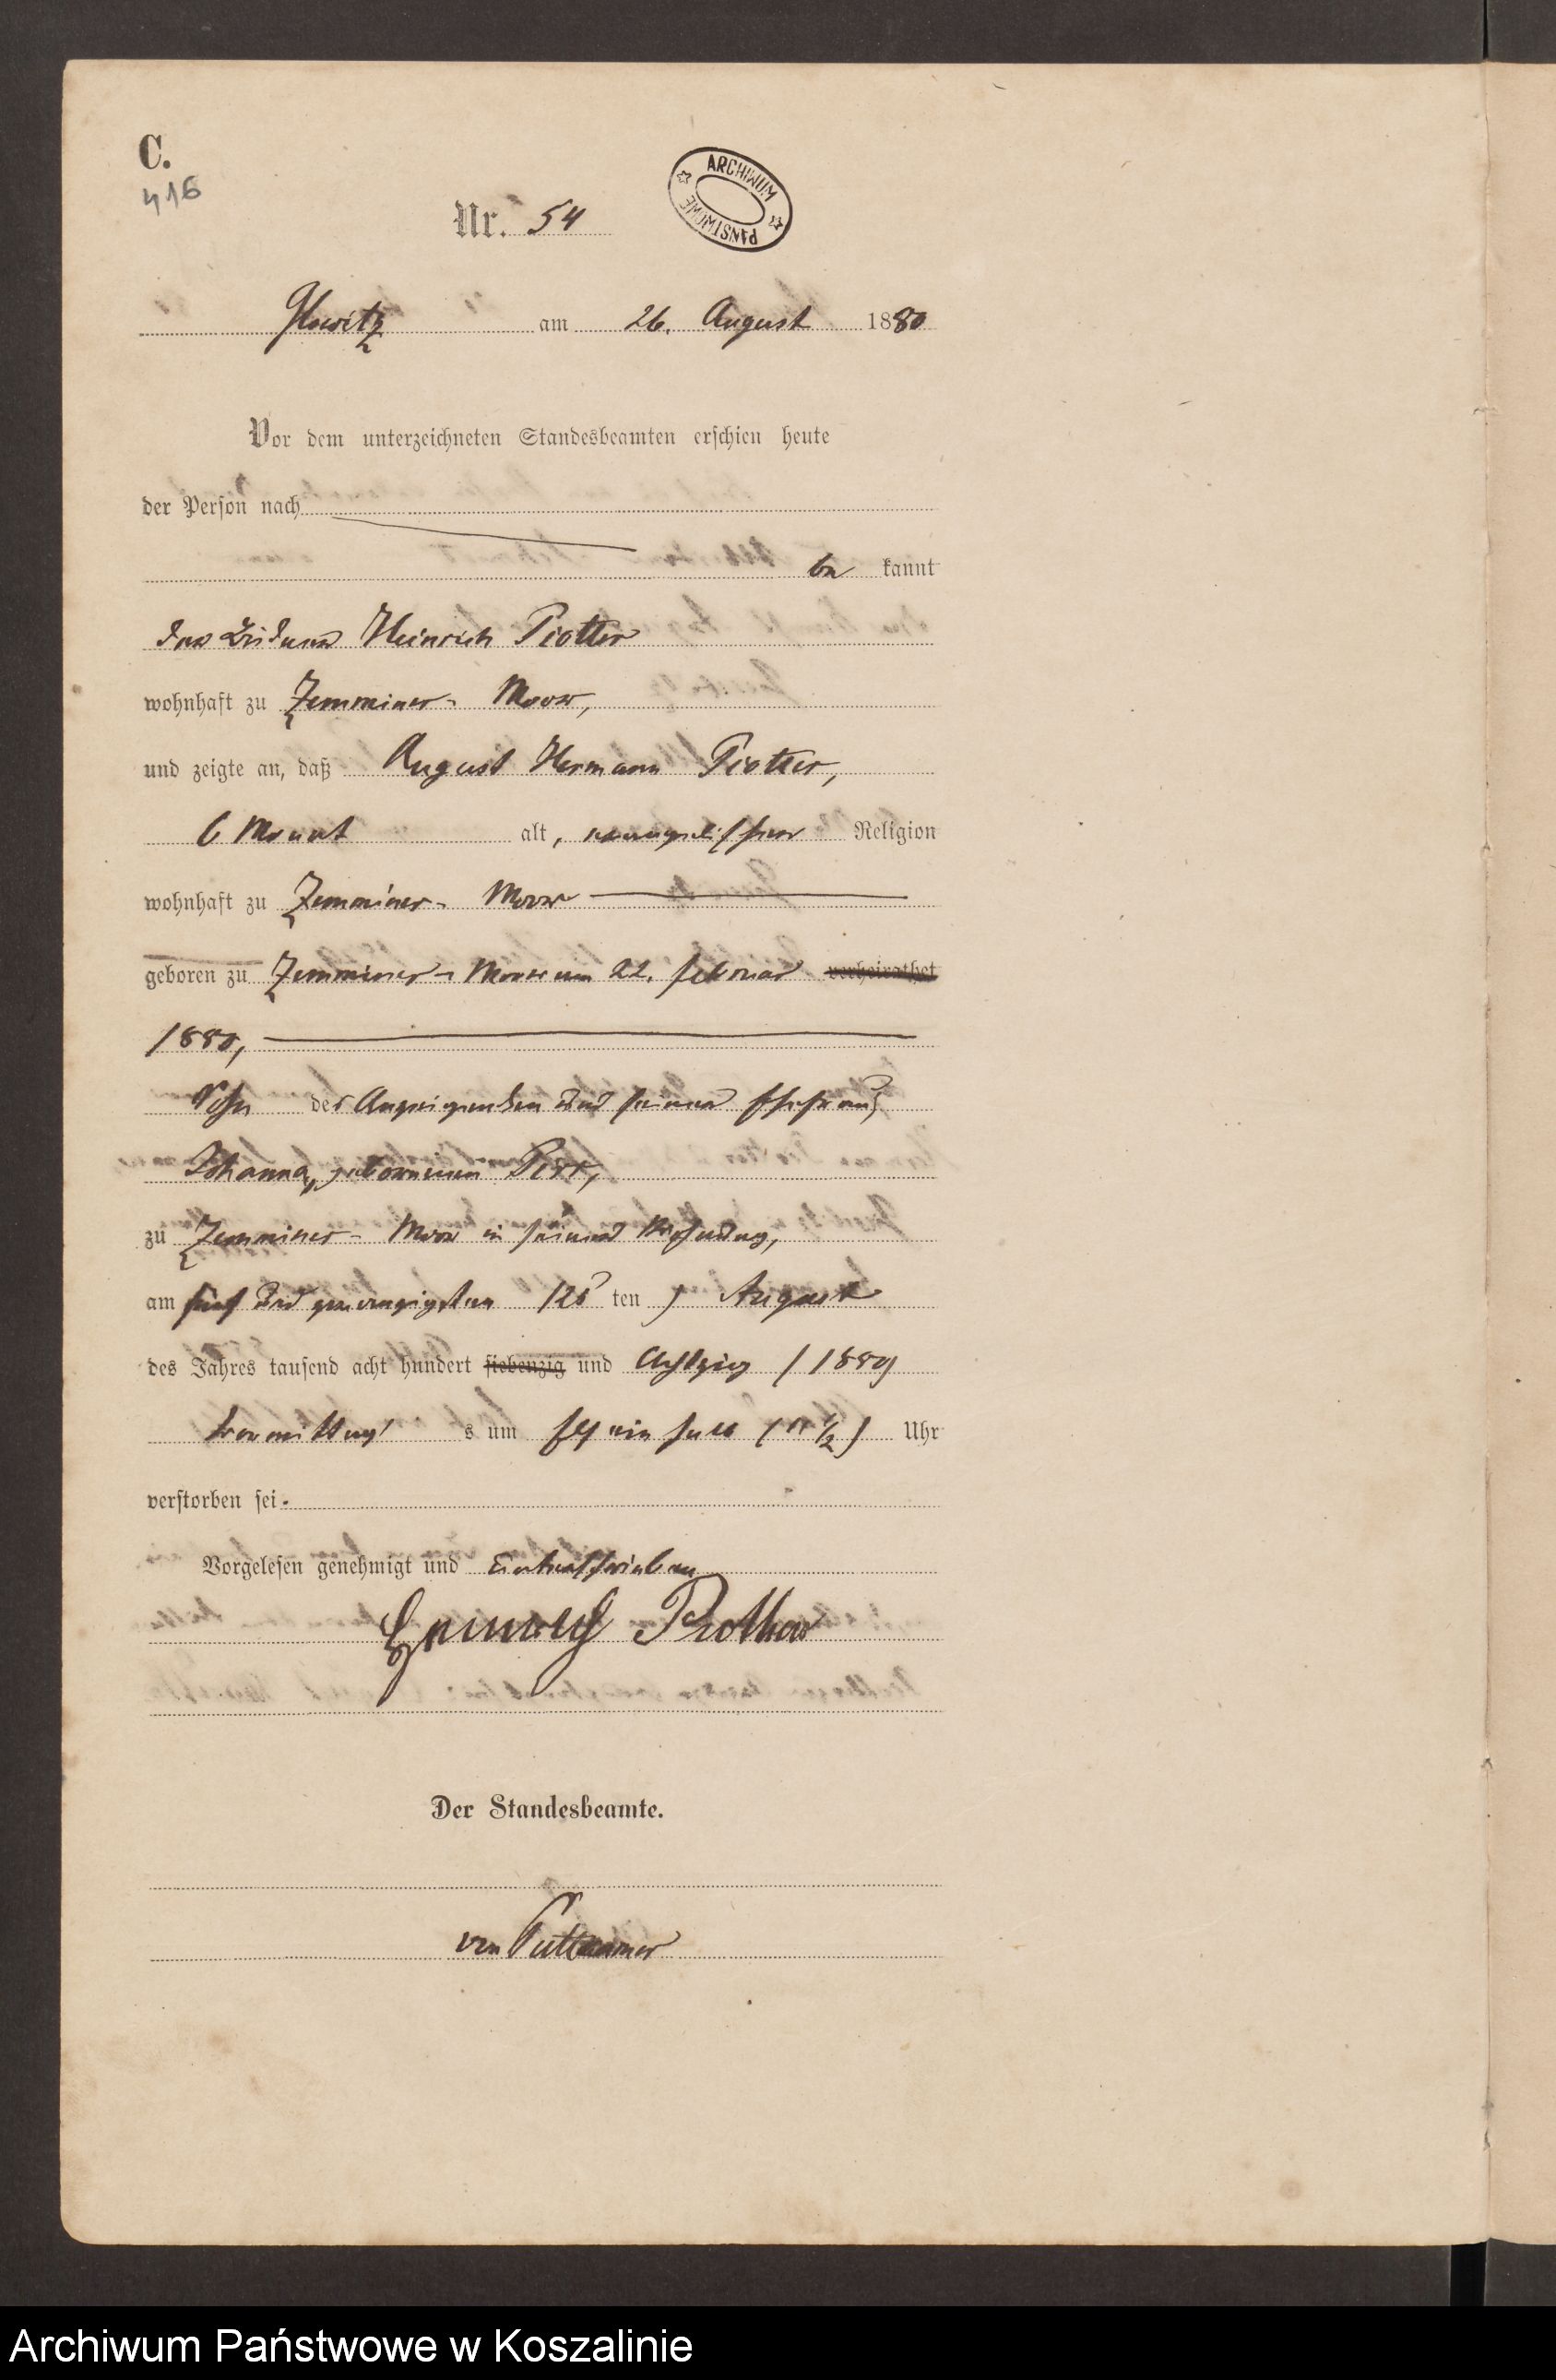 C.
416
Nr. 54
ARCHIWUM PAŃSTWOWE
Glowitz am 26. August 1880
Vor dem unterzeichneten Standesbeamten erschien heute
der Person nach
be kannt
der Büdner Heinrich Piotter
wohnhaft zu Zemminer- Moor,
und zeigte an, daß August Hermann Piotter,
6 Monat alt, evangelischer Religion
wohnhaft zu Zemminer- Moor
geboren zu Zemminer- Moor am 22. Februar verheirathet
1880,
Sohn des Anzeigenden und seiner Ehefrau,
Johanna, geborenen
zu Zemminer- Moor in seiner Wohnung,
am fünf und zwanzigsten (25 ten) August
des Jahres tausend acht hundert siebenzig und Achtzig (1880)
Vormittags um elf ein halb (11 1/2) Uhr
verstorben sei.
Vorgelesen genehmigt und Unterschrieben
Heinrich Piotter
Der Standesbeamte.
von Puttkamer
Archiwum Państwowe w Koszalinie